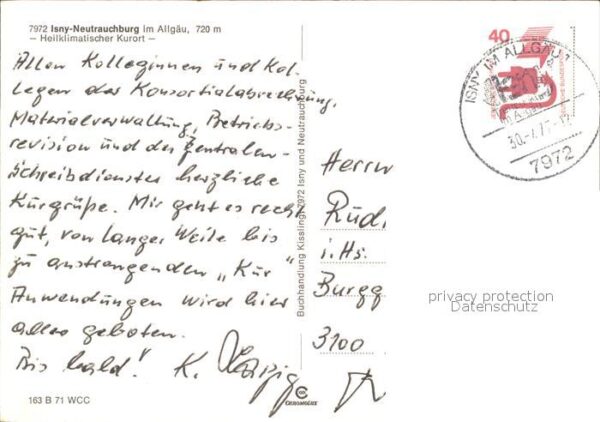 7972 Isny-Neutrauchburg im Allgäu, 720 m
— Heilklimatischer Kurort —
Allen Kolleginnen und Kol-
legen der Konsortialabrechnung,
Materialverwaltung, Betriebs-
revision und des Zentralen-
Schreibdienstes herzliche
Kurgrüße. Mir geht es recht
gut, von langer Weile bis
zu anstrengenden „Kur"
Anwendungen wird hier
alles geboten.
Bis bald! K.
163 B 71 WCC
Buchhandlung Kissling, 7972 Isny und Neutrauchburg
CEKOMGERE
40
ISNY IM ALLGÄU 1
7972
Herrn
Rüd
i. Hs.
Burgg
3100
privacy protection
Datenschutz